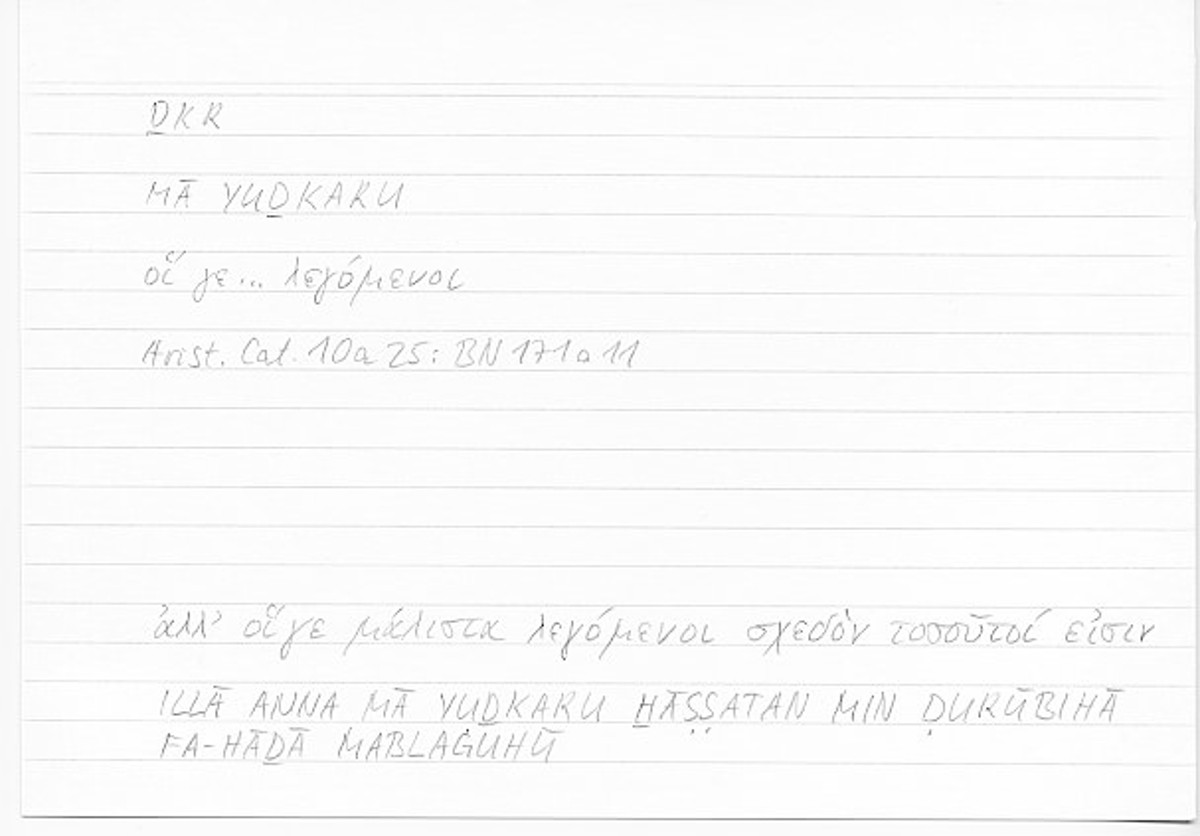 ḎKR
MĀ YUḎKARU
οἵ γε... λεγόμενοι
Arist. Cat. 10a 25: BN 171a 11
ἀλλ' οἵ γε μάλιστα λεγόμενοι σχεδὸν τοσοῦτοί εἰσιν
ILLĀ ANNA MĀ YUḎKARU ḪĀṢṢATAN MIN ḌURŪBIHĀ
FA-HĀḎĀ MABLAĠUHŪ